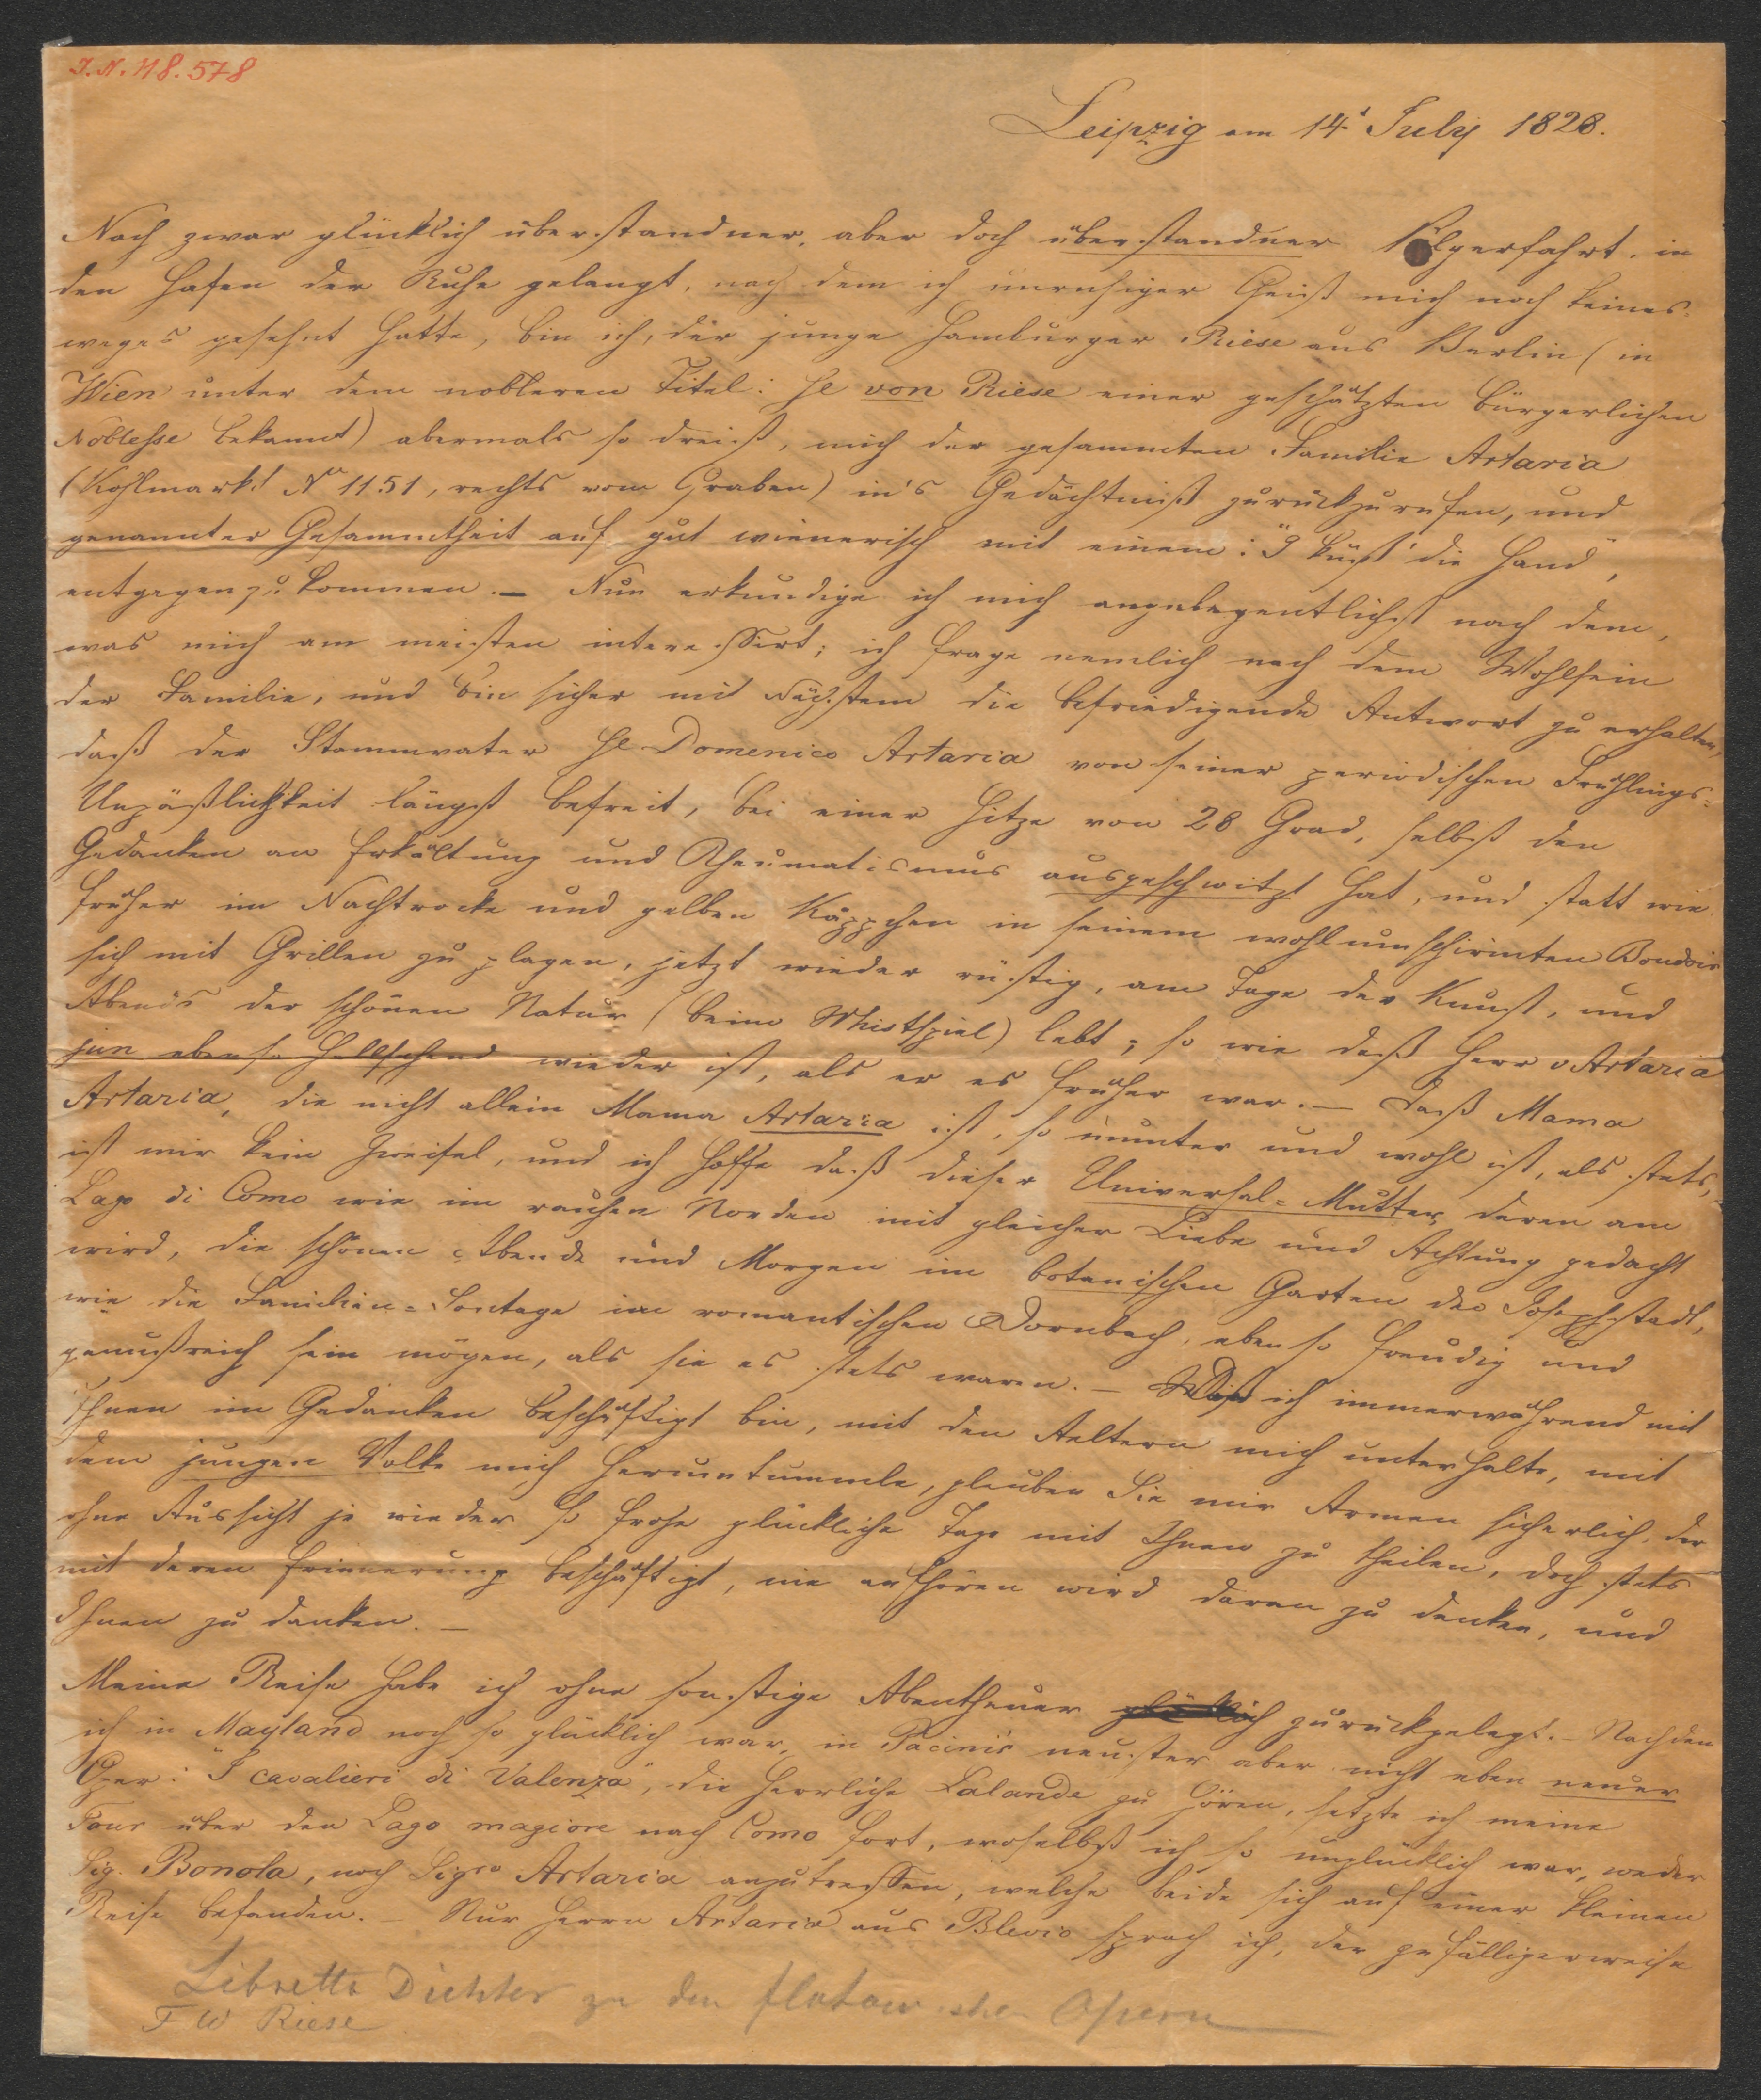 I.N. 48.578
Leipzig am 14t July 1828.
Nach zwar glücklich überstandner, aber doch überstandner Pilgerfahrt, in
den Hafen der Ruhe gelangt, nach dem ich unruhiger Geist mich noch keines-
weges gesehnt hatte, bin ich, der junge Hamburger Riese aus Berlin (in
Wien unter dem nobleren Titel: H von Riese einer geschätzten bürgerlichen
Noblesse bekannt) abermals so dreist, mich der gesammten Familie Artaria
(Kohlmarkt No 1151, rechts vom Graben) in's Gedächtniß zurückzurufen, und
genannter Gesammtheit auf gut wienerisch mit einem: "I küss' die Hand",
entgegenzukommen. – Nun erkundige ich mich angelegentlichst nach dem,
was mich am meisten interessirt; ich frage nemlich nach dem Wohlsein
der Familie, und bin sicher mit Nächstem die befriedigende Antwort zu erhalten,
daß der Stammvater H Domenico Artaria von seiner periodischen Frühlings-
Unpäßlichkeit längst befreit, bei einer Hitze von 28 Grad, selbst den
Gedanken an Erkältung und Rheumatismus ausgeschwitzt hat, und statt wie
früher im Nachtrocke und gelben Käppchen in seinem wohlumschirmten Boudoir
sich mit Grillen zu plagen, jetzt wieder rüstig, am Tage der Kunst, und
Abends der schönen Natur (beim Whistspiel) lebt; so wie daß Herr v Artaria
jun ebenso hellsehend wieder ist, als er es früher war. – Daß Mama
Artaria, die nicht allein Mama Artaria ist, so munter und wohl ist, als stets,
ist mir kein Zweifel, und ich hoffe daß dieser Universal-Mutter, deren am
Lago di Como wie im rauhen Norden mit gleicher Liebe und Achtung gedacht
wird, die schönen Abende und Morgen im botanischen Garten der Josephstadt,
wie die Familien-Sontage im romantischen Dornbach, eben so freudig und
genußreich sein mögen, als sie es stets waren. – Daß ich immerwährend mit
Ihnen im Gedanken beschäftigt bin, mit den Aeltern mich unterhalte, mit
dem jungen Volke mich herumtummle, glauben Sie mir Armen sicherlich, der
ohne Aussicht je wieder so frohe glückliche Tage mit Ihnen zu theilen, doch stets
mit deren Erinnerung beschäftigt, nie aufhören wird daran zu denken, und
Ihnen zu danken. –
Meine Reise habe ich ohne sonstige Abentheuer glücklich zurückgelegt. – Nachdem
ich in Mayland noch so glücklich war, in Pacini's neuster aber nicht eben neuer
Oper: "I cavalieri di Valenza", die herrliche Lalande zu hören, setzte ich meine
Tour über den Lago magiore nach Como fort, woselbst ich so unglücklich war, weder
Sig. Bonola, noch Sigra Artaria anzutreffen, welche beide sich auf einer kleinen
Reise befanden. – Nur Herrn Artaria aus Blevio sprach ich, der gefälligerweise
Libretto Dichter zu den flotowschen Opern
F W Riese